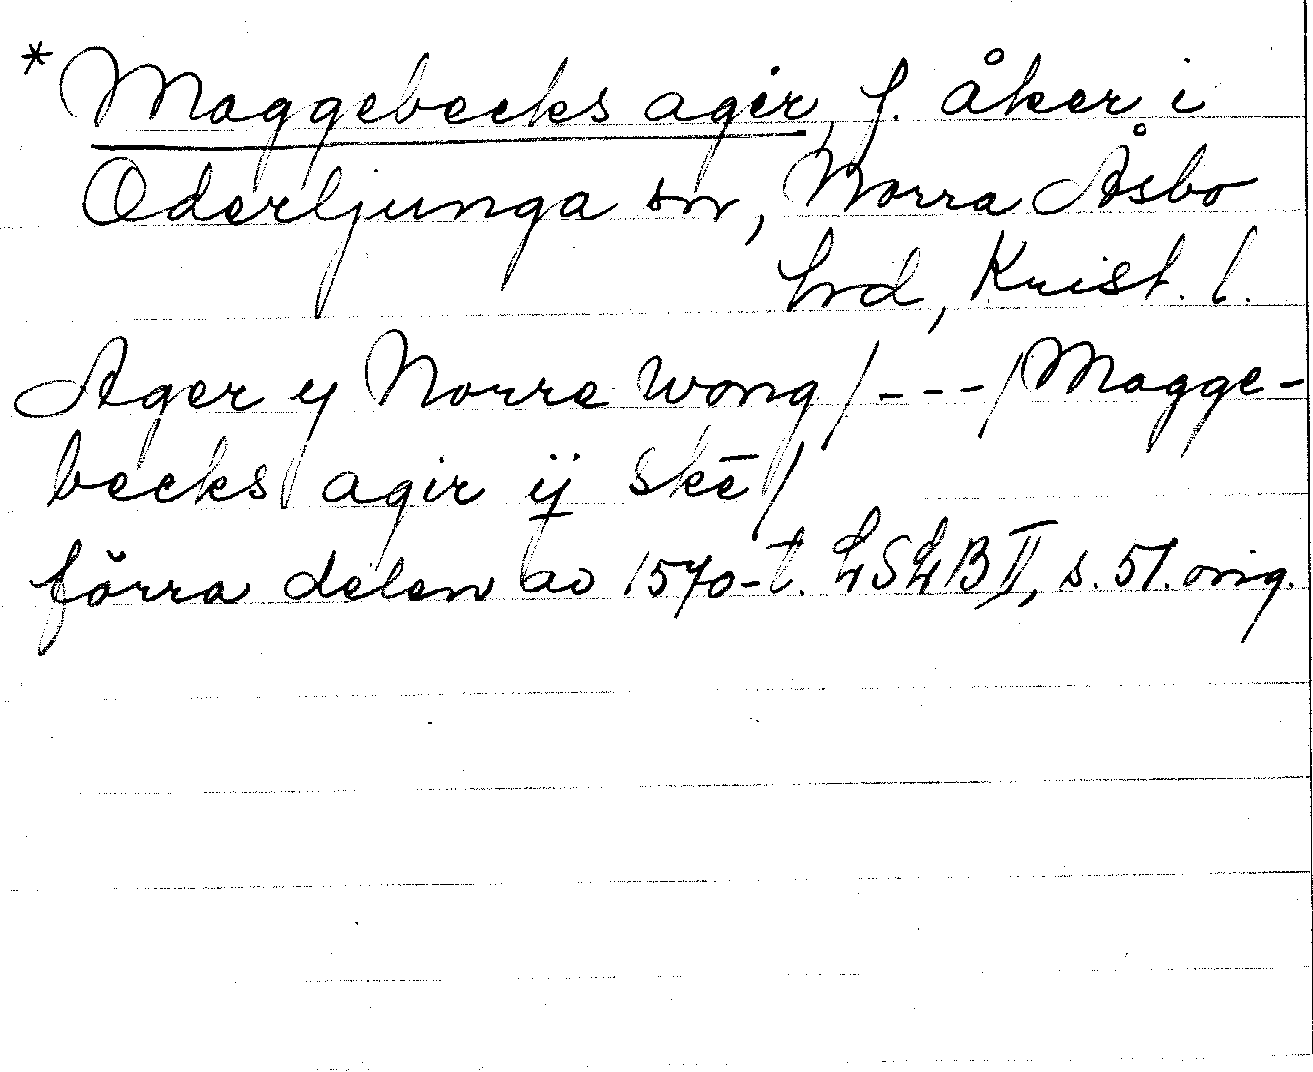 *Maggebecks agir, f. åker i
Oderljunga sn, Norra Åsbo
hrd, Krist. l.
Ager y Norre wong /---/ Magge-
becks agir ij skē /
förra delen av 1570-t. LSLB II, s. 51. orig.